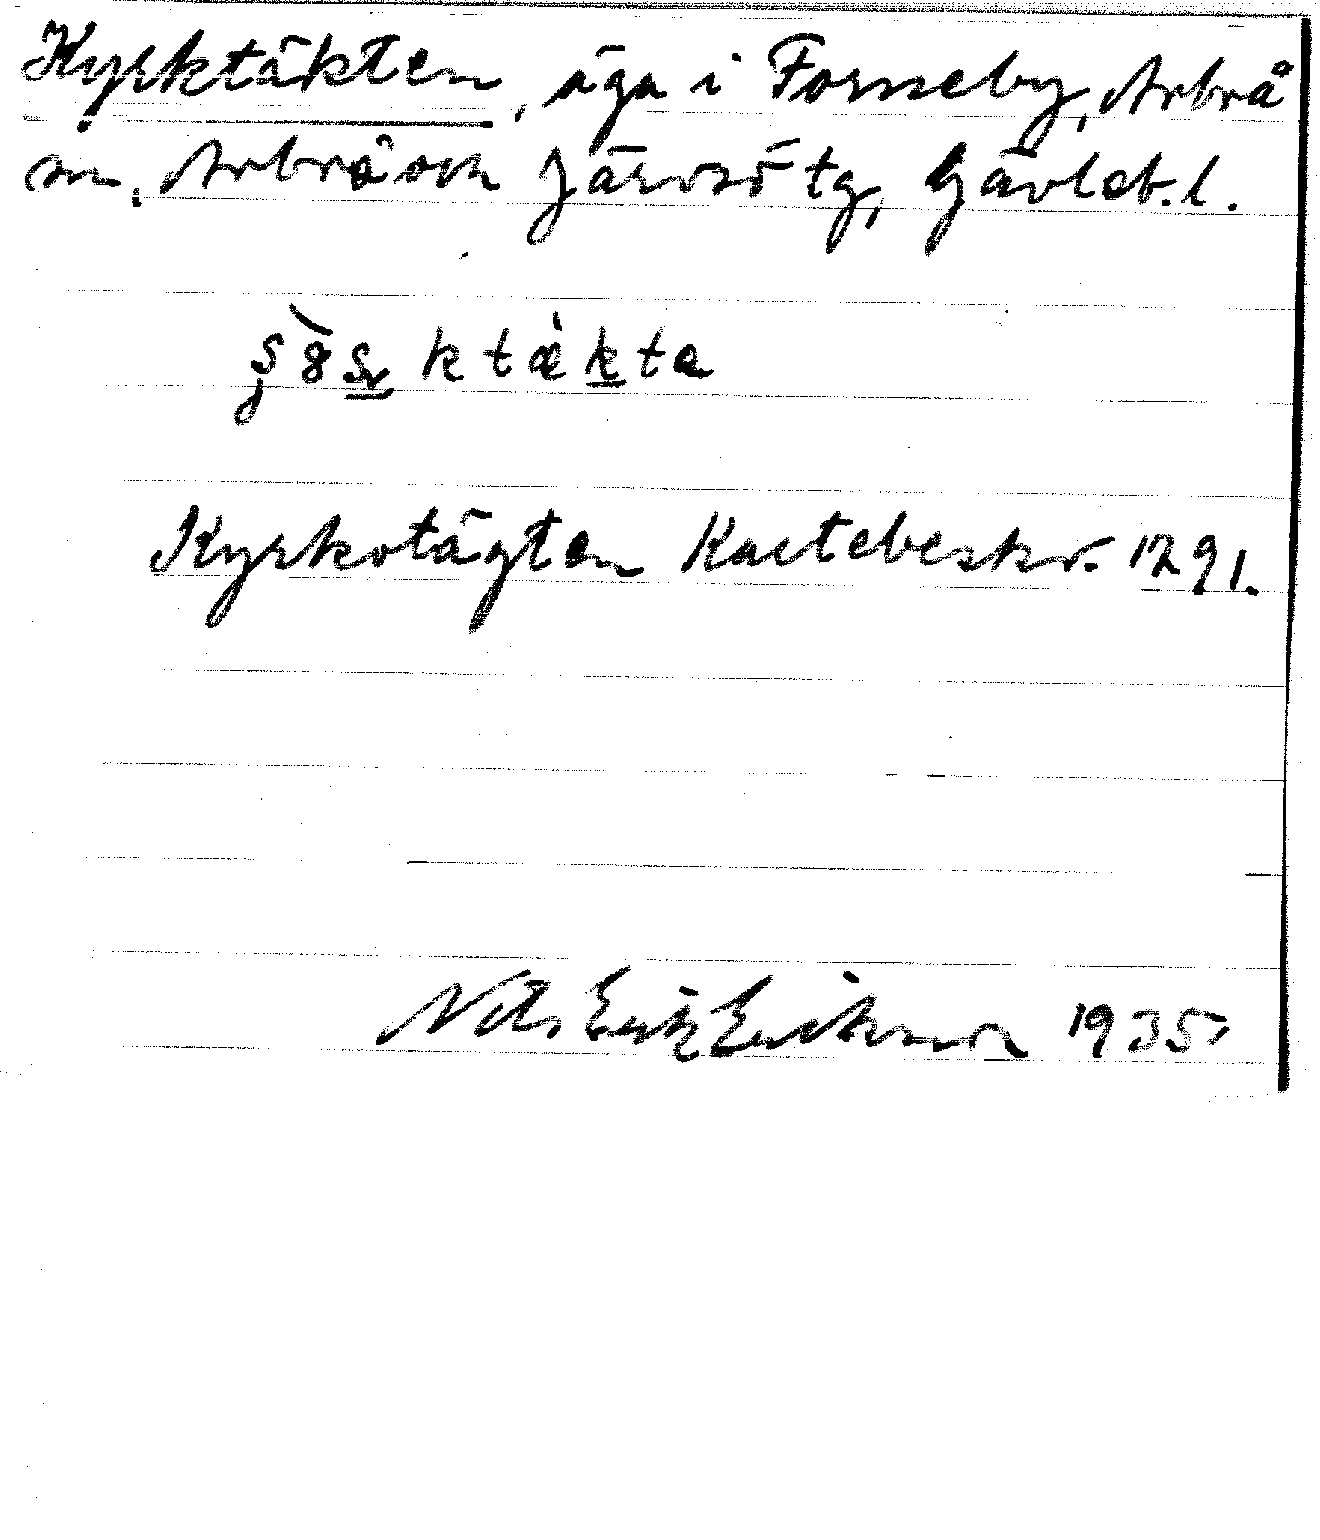 Kyrktäkten, äga i Forneby, Arbrå
sn, Arbrå och Järvsö tg, Gävleb. l.
Kyrkotägten Kartebeskr. 1791.
Nils Erik Eriksson 1935